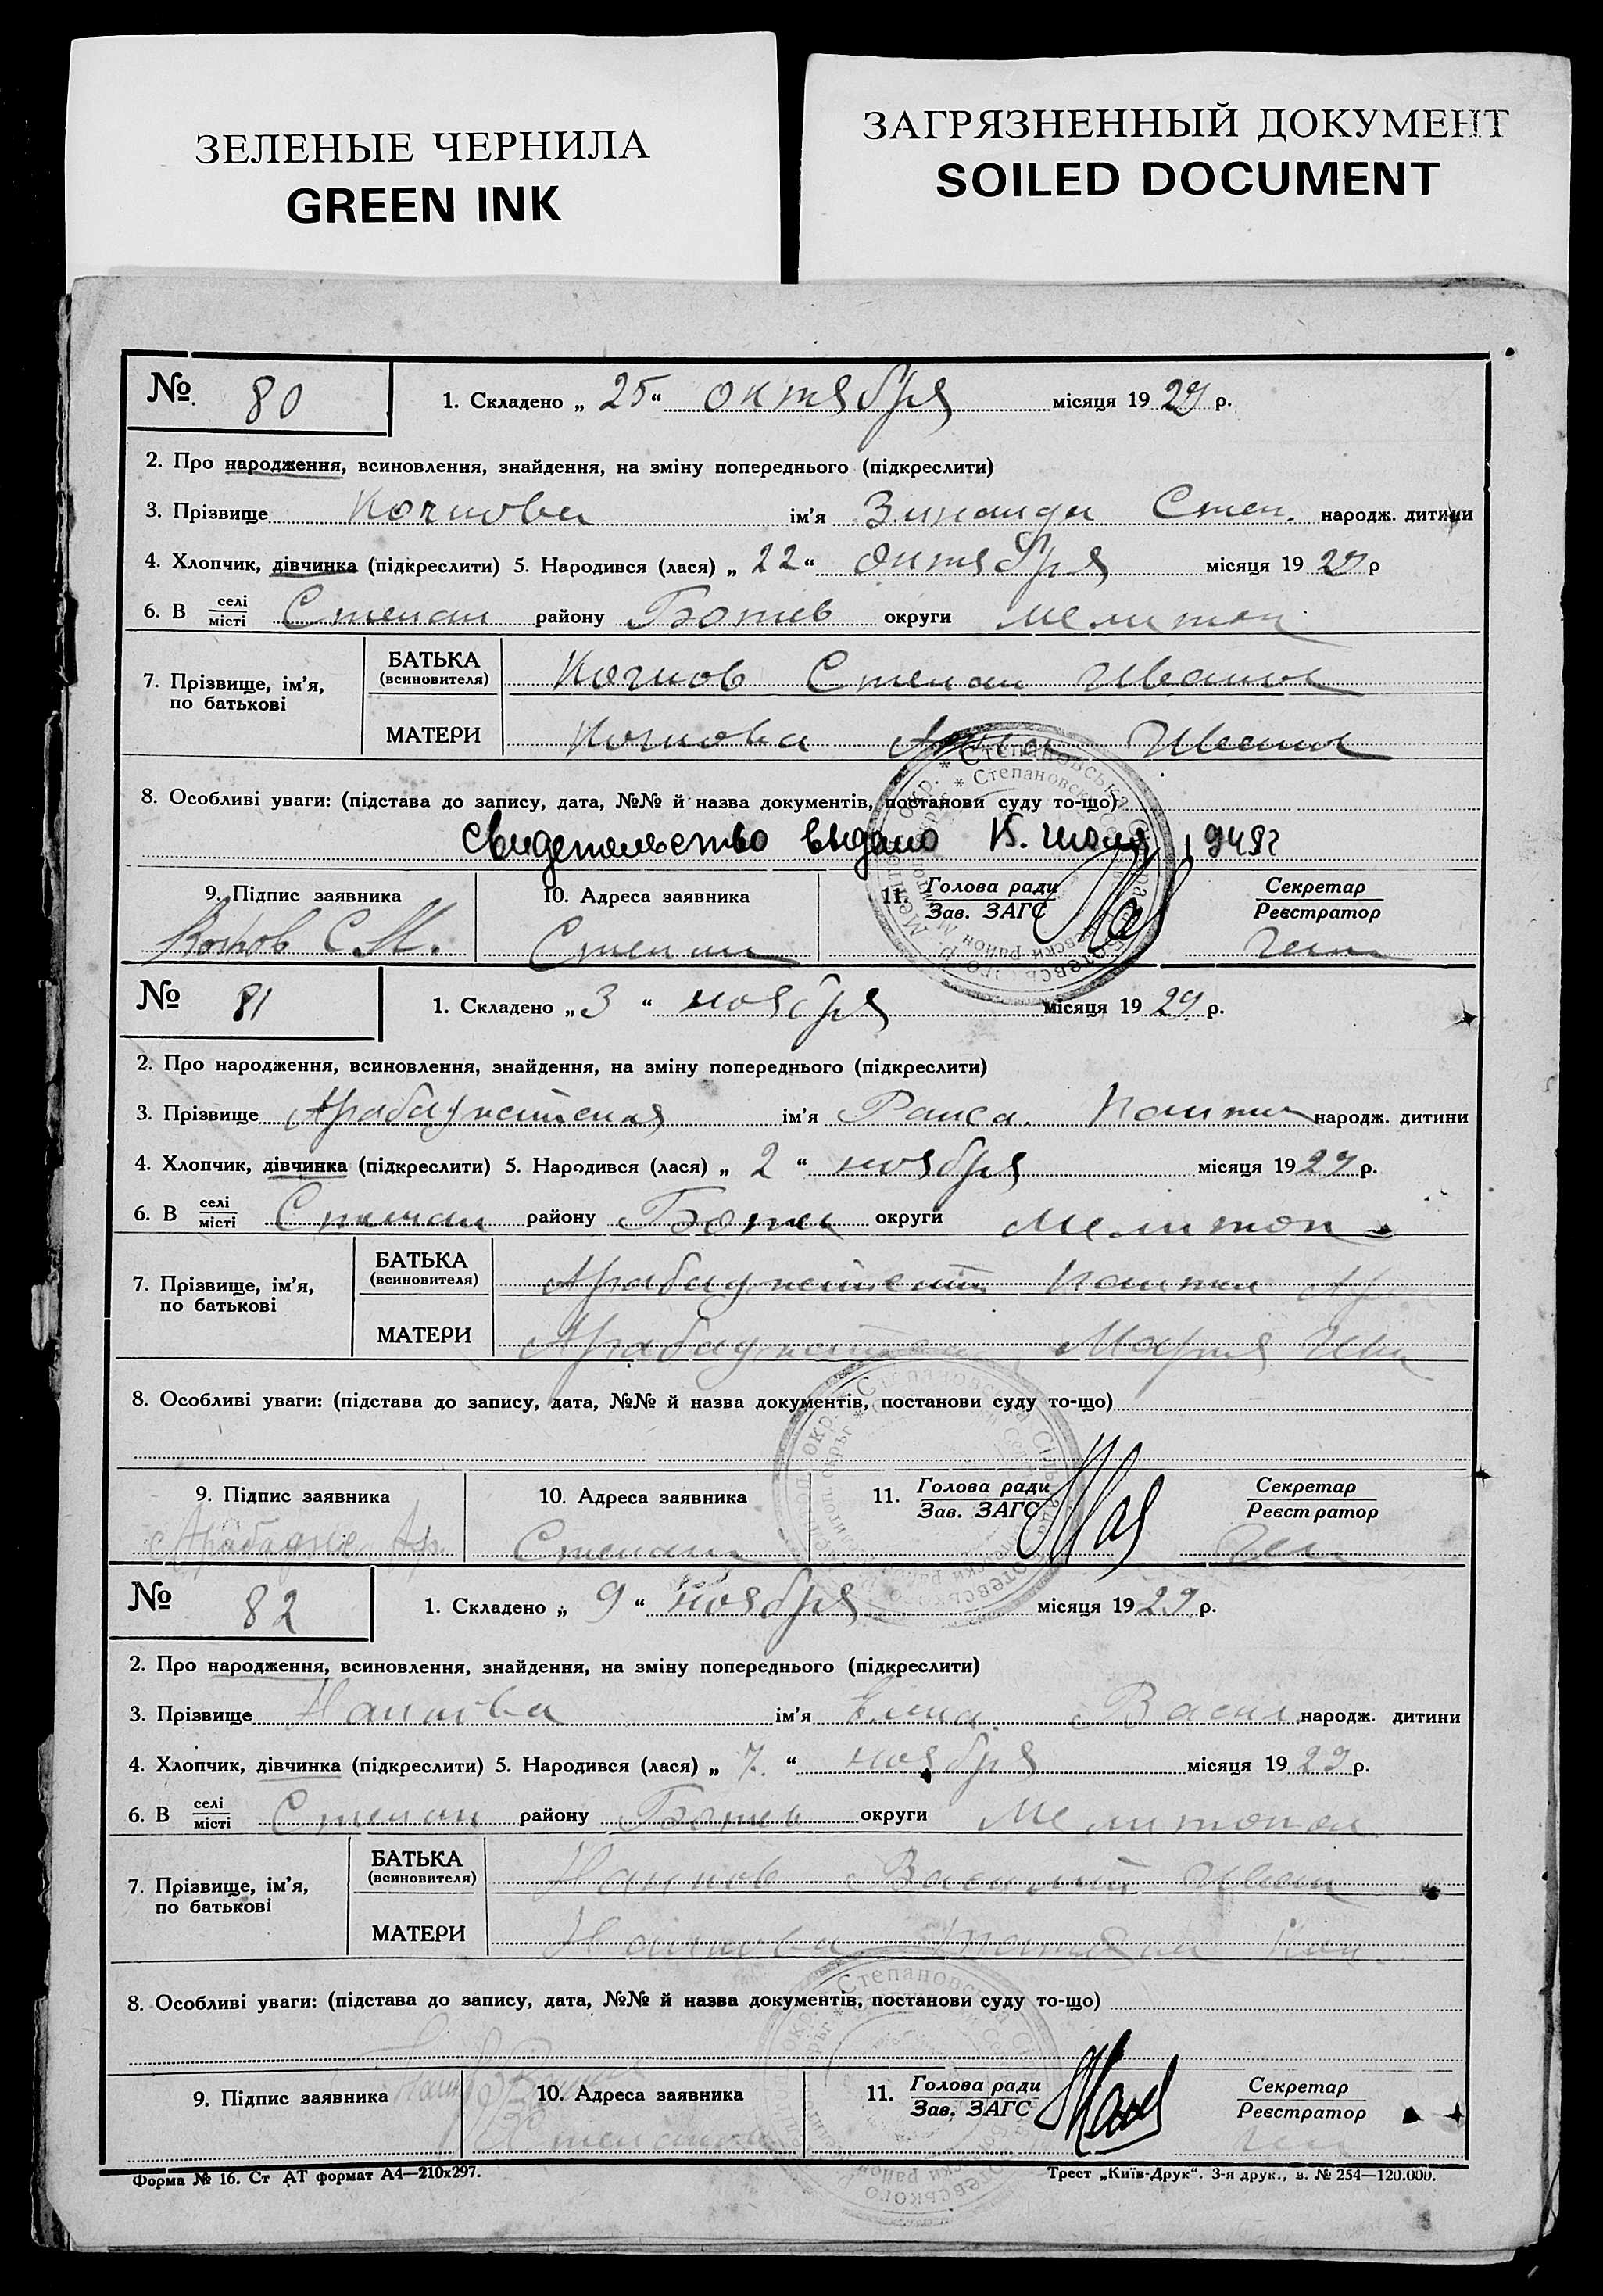 ЗЕЛЕНЫЕ ЧЕРНИЛА
GREEN INK
ЗАГРЯЗНЕННЫЙ ДОКУМЕНТ
SOILED DOCUMENT
№ 80 1. Складено „ 25 “ октября місяця 19 29 р.
2. Про народження, всиновлення, знайдення, на зміну попереднього (підкреслити)
3. Прізвище Кочкова ім'я Зинаида Степ. народж. дитини
4. Хлопчик, дівчинка (підкреслити) 5. Народився (лася) „ 22 “ октября місяця 19 29 р
6. В селі/місті Степан району Ботев округи Мелитоп
7. Прізвище, ім'я, по батькові
БАТЬКА (всиновителя) Кочков Степан Иванов
МАТЕРИ Кочкова Иванов
8. Особливі уваги: (підстава до запису, дата, №№ й назва документів, постанови суду то-що)
Свидетельство выдано 15. июля 1949г
9. Підпис заявника 10. Адреса заявника 11. Голова ради/Зав. ЗАГС Секретар/Реєстратор
Степан
№ 81 1. Складено „ 3 “ ноября місяця 19 29 р.
2. Про народження, всиновлення, знайдення, на зміну попереднього (підкреслити)
3. Прізвище Арабаджийская ім'я Раиса. народж. дитини
4. Хлопчик, дівчинка (підкреслити) 5. Народився (лася) „ 2 “ ноября місяця 19 29 р.
6. В селі/місті Степан району Ботев округи Мелитоп
7. Прізвище, ім'я, по батькові
БАТЬКА (всиновителя) Арабаджийский
МАТЕРИ Мария
8. Особливі уваги: (підстава до запису, дата, №№ й назва документів, постанови суду то-що)
9. Підпис заявника 10. Адреса заявника 11. Голова ради/Зав. ЗАГС Секретар/Реєстратор
Степан
№ 82 1. Складено „ 9 “ ноября місяця 19 29 р.
2. Про народження, всиновлення, знайдення, на зміну попереднього (підкреслити)
3. Прізвище ім'я Елена Васил народж. дитини
4. Хлопчик, дівчинка (підкреслити) 5. Народився (лася) „ 7. “ ноября місяця 19 29 р.
6. В селі/місті Степан району Ботев округи Мелитопол
7. Прізвище, ім'я, по батькові
БАТЬКА (всиновителя) Василий Иван
МАТЕРИ
8. Особливі уваги: (підстава до запису, дата, №№ й назва документів, постанови суду то-що)
9. Підпис заявника 10. Адреса заявника 11. Голова ради/Зав. ЗАГС Секретар/Реєстратор
Форма № 16. Ст АТ формат А4—210х297. Трест „Київ-Друк“. 3-я друк., з. № 254—120.000.